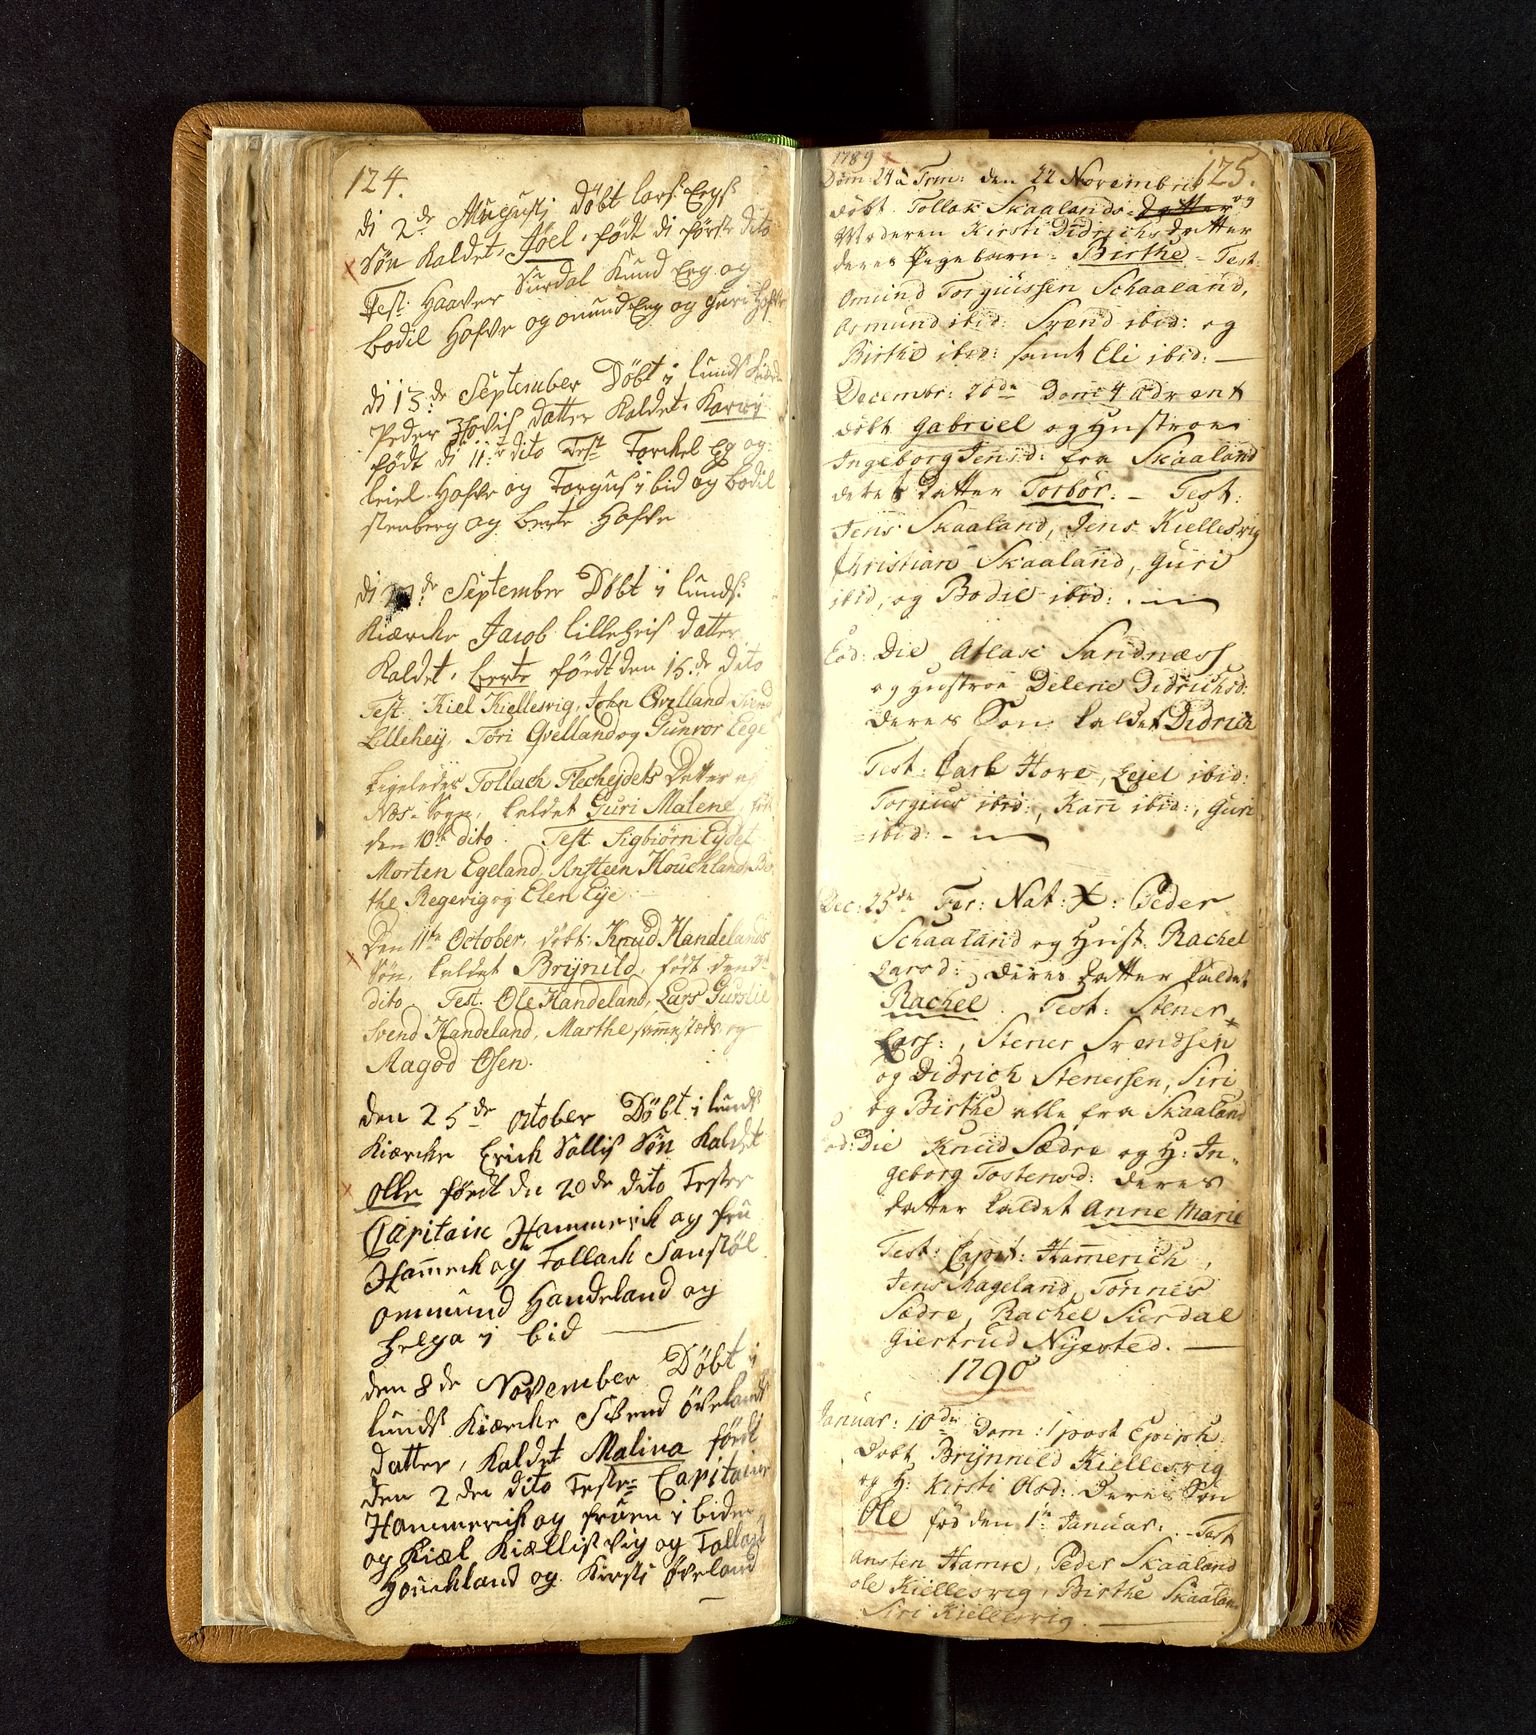 124.
di 2de Augustj Döbt lars Eegs
Søn Kaldet. Joel. födt di förste dito
Test. Haaver Surdal Knud Eeg og
bodil Hofve og omund Eeg og Guri Hofve
di 13de September Döbt i lunds Kiærke
Peder Hovis datter Kaldet. Karri
födt di 11te dito Test Torckel Eg og
leiel Hofve og Torgus i bid og bodil
stenberg og berte Hofve
di de September Döbt i lunds
Kiærcke Jacob lilleheis datter
Kaldet. berte fördt den 15de dito
Test. Kiel Kiellesvig, John Qvelland, Svend
Lillehey, Töri Qvelland og Gunvor Eege
Ligeledes Tollach Flechejdets Datter af
Næs-Sogn, kaldet Guri Malene, född
den 10de dito. Test. Sigbiörn Eydet,
Morten Egeland, Ansteen Houchland, Ber-
the Regevig og Elen Eye.
Den 11te October, döbt, Knud Handelands
Søn, kaldet Brÿnild, født den
dito. Test. Ole Handeland, Lars Gurslie
Svend Handeland, Marthe sammestæds og
Aagod Osen.
den 25de october Döbt i lunds
Kiærcke Erich Vallis Søn Kaldet
olle förndt den 20de dito Tester
Capitain Hammerich og fru
Hamerich og Tollach Sanstöl
ommund Handeland og
helga i bid
den 8de November Döbt i
lunds Kiærcke Svend övelands
datter, Kaldet Malina förndt
den 2den dito Tester Capitain
Hammerich og fruen i biden
og Kiæl Kiællisvig og Tollach
Houchland og Kirsti öveland
1789
125.
Dom: 24 à Trin: den 22 Novembris
döbt Tollak Skaalands datter og
Moderen Kirsti Didrichsdatter
deres Pigebarn - Birthe - Test:
Omund Torgiussen Schaaland,
Osmund ibid: Svend ibid: og
Birthe ibid: samt Eli ibid: —
Decembr: 20de Dom: 4 Advent
döbt Gabriel og Hustroe
Ingeborg Jensd: fra Skaaland
deres datter Torbor. - Test:
Jens Skaaland, Jens Kiellesvig
Christian Skaaland, Guri
ibid, og Bodil ibid:
Eod: Die Aslak Sandnæss
og Hustroe Delene Didrichsd:
deres Søn kaldet Didrich
Test: Carl Hove, Lejel ibid:
Torgius ibid:, Kari ibid:, Guri
ibid:
Dec: 25de Fer: Nat: X: Peder
Schaaland og Hust. Rachel
Larsd: deres datter kaldet
Rachel. Test: Stener
Lars:, Stener Svendsen
og Didrich Stenersen, Siri
og Birthe alle fra Skaaland
Eod: Die Knud Sædre og H: In-
geborg Tostensd: deres
datter kaldet Anne Marie
Test: Capit: Hamerich,
Jens Mageland, Tönnes
Sædre, Rachel Surdal
Giertrud Nÿested. —
1790
Januar: 10de Dom: 1 post Epiph:
Döbt Brÿnnild Kiellesvig
og H: Kirsti Olsd: Deres Søn
Ole fød den 1te Januar: . Test
Ansten Hamre, Peder Skaaland
ole Kiellesvig, Birthe Skaaland
Siri Kiellesvig.